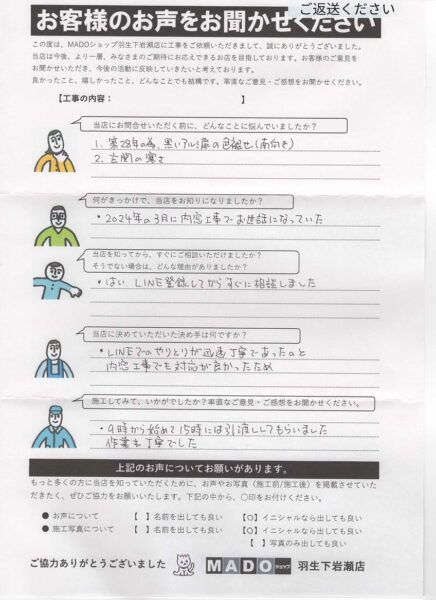 ご返送ください
お客様のお声をお聞かせください
この度は、MADOショップ羽生下岩瀬店に工事をご依頼いただきまして、誠にありがとうございました。
当店は今後、より一層、みなさまのご期待にお応えできるお店を目指しております。お客様のご意見を
お聞かせいただき、今後の活動に反映していきたいと考えております。
良かったこと、嬉しかったこと、どんなことでも結構です。率直なご意見・ご感想をお聞かせください。
【工事の内容： 】
当店にお問合せいただく前に、どんなことに悩んでいましたか？
1. 築28年の為、黒いアルミ扉の色褪せ(南向き)
2. 玄関の寒さ
何がきっかけで、当店をお知りになりましたか？
・2024年の3月に内窓工事でお世話になっていた
当店を知ってから、すぐにご相談いただけましたか？
そうでない場合は、どんな理由がありましたか？
・はい、LINE登録してからすぐに相談しました
当店に決めていただいた決め手は何ですか？
・LINEでのやりとりが迅速丁寧であったのと
内窓工事でも対応が良かったため
施工してみて、いかがでしたか？率直なご意見・ご感想をお聞かせください。
・9時から始めて15時には引渡ししてもらいました
作業も丁寧でした
上記のお声についてお願いがあります。
もっと多くの方に当店を知っていただくために、お声やお写真（施工前/施工後）を掲載させていた
だきたく、ぜひご協力をお願いいたします。下記の中から、〇印をお付けください。
● お声について 【 】名前を出しても良い 【〇】イニシャルなら出しても良い
● 施工写真について 【 】名前を出しても良い 【〇】イニシャルなら出しても良い
【 】写真のみ出しても良い
ご協力ありがとうございました MADOショップ 羽生下岩瀬店